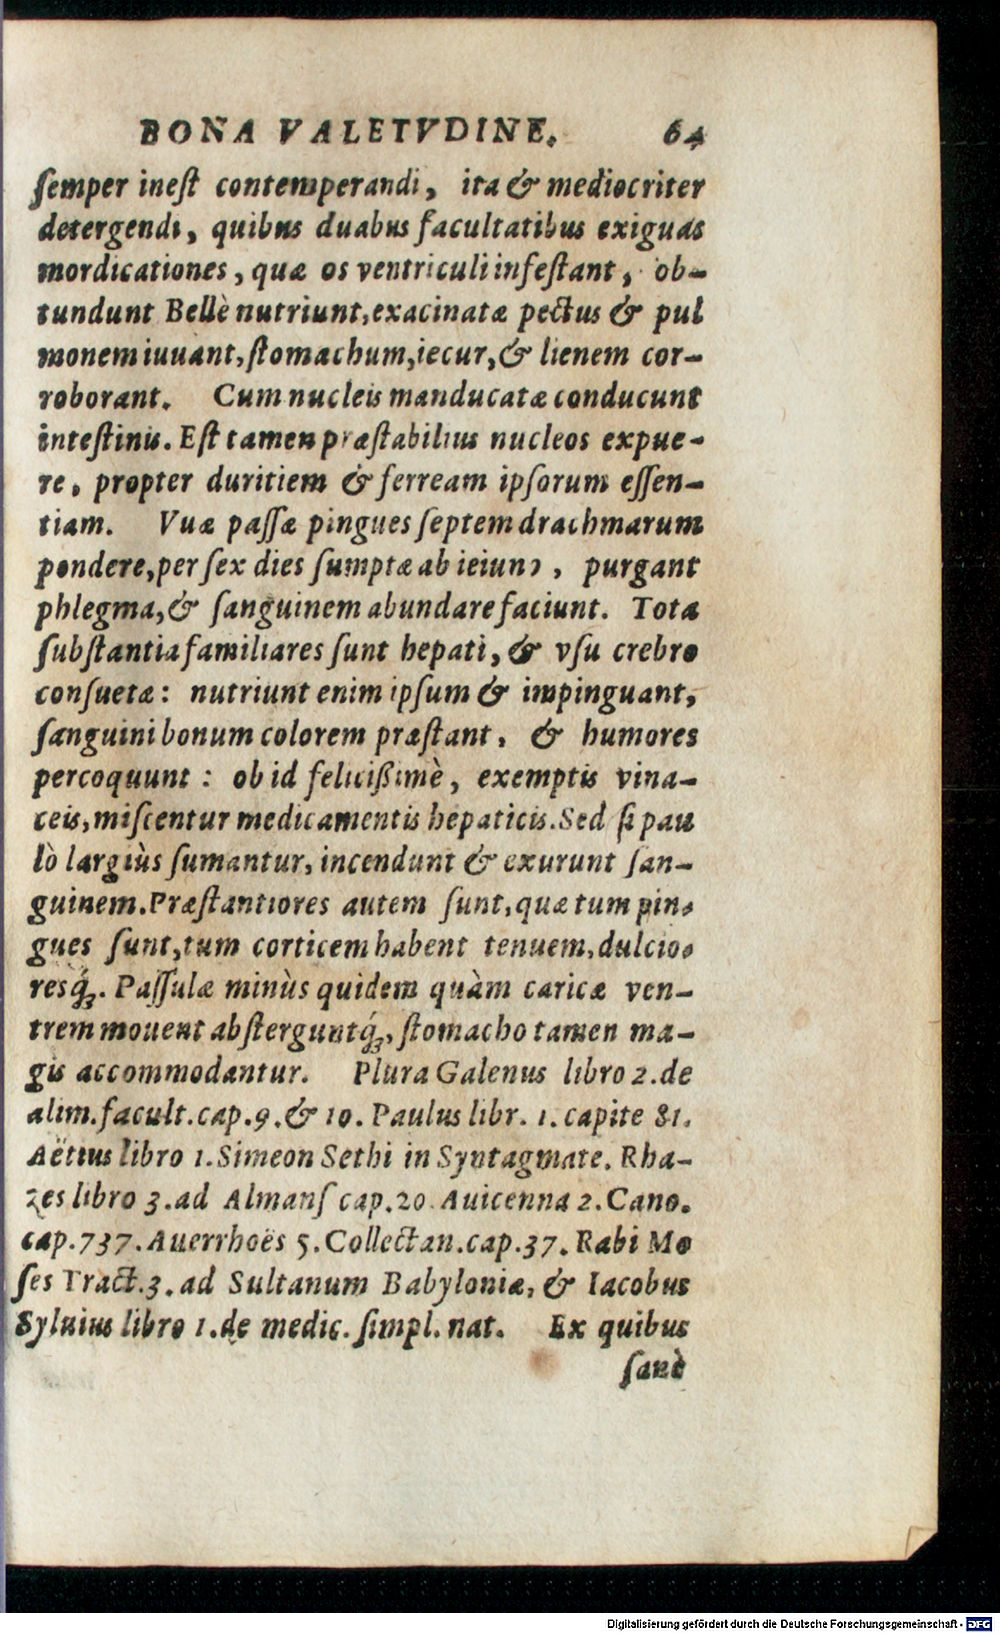 BONA VALETVDINE. 64
ſemper ineſt contemperandi, ita & mediocriter
detergendi, quibus duabus facultatibus exiguas
mordicationes, quæ os ventriculi infeſtant, ob-
tundunt Bellè nutriunt, exacinatæ pectus & pul
monem iuuant, ſtomachum, iecur, & lienem cor-
roborant. Cum nucleis manducatæ conducunt
inteſtinis. Eſt tamen præſtabilius nucleos expue-
re, propter duritiem & ferream ipſorum eſſen-
tiam. Vuæ paſſæ pingues ſeptem drachmarum
pondere, per ſex dies ſumptæ ab ieiuno, purgant
phlegma, & ſanguinem abundare faciunt. Tota
ſubſtantia familiares ſunt hepati, & vſu crebro
conſuetæ: nutriunt enim ipſum & impinguant,
ſanguini bonum colorem præſtant, & humores
percoquunt: ob id feliciſſimè, exemptis vina-
ceis, miſcentur medicamentis hepaticis. Sed ſi pau
lò largiùs ſumantur, incendunt & exurunt ſan-
guinem. Præſtantiores autem ſunt, quæ tum pin-
gues ſunt, tum corticem habent tenuem, dulcio-
resq́;. Paſſulæ minùs quidem quàm caricæ ven-
trem mouent abſterguntq́;, ſtomacho tamen ma-
gis accommodantur. Plura Galenus libro 2. de
alim. facult. cap. 9. & 10. Paulus libr. 1. capite 81.
Aëtius libro 1. Simeon Sethi in Syntagmate. Rha-
zes libro 3. ad Almanſ cap. 20. Auicenna 2. Cano.
cap. 737. Auerrhoës 5. Collectan. cap. 37. Rabi Mo
ſes Tract. 3. ad Sultanum Babyloniæ, & Iacobus
Syluius libro 1. de medic. ſimpl. nat. Ex quibus
ſanè
Digitalisierung gefördert durch die Deutsche Forschungsgemeinschaft - DFG